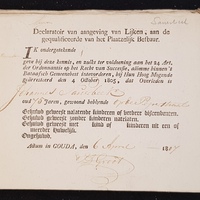 Declaratoir van aangeving van Lijken, aan de
gequalificeerde van het Plaatselijk Bestuur.
IK ondergeteekende
geve bij deze kennis, en zulks ter voldoening aan het 14 Art.
der Ordonnantie op het Recht van Successie, alomme binnen 't
Bataafsch Gemeenebest te invorderen, bij Hun Hoog Mogende
gearresteerd den 4 October 1805, dat Overleden is
oud 70 Jaren, gewoond hebbende
Gehuwd geweest nalatende kinderen of verdere descendenten.
Gehuwd geweest zonder kinderen natelaten.
Gehuwd geweest met kind of kinderen uit een of
meerder Huwelijk.
Ongehuwd.
Actum in GOUDA, den 6 April 1807